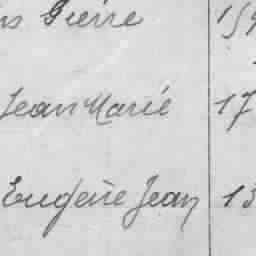 Pierre 15
Jean Marie 17
Eugène Jean 13